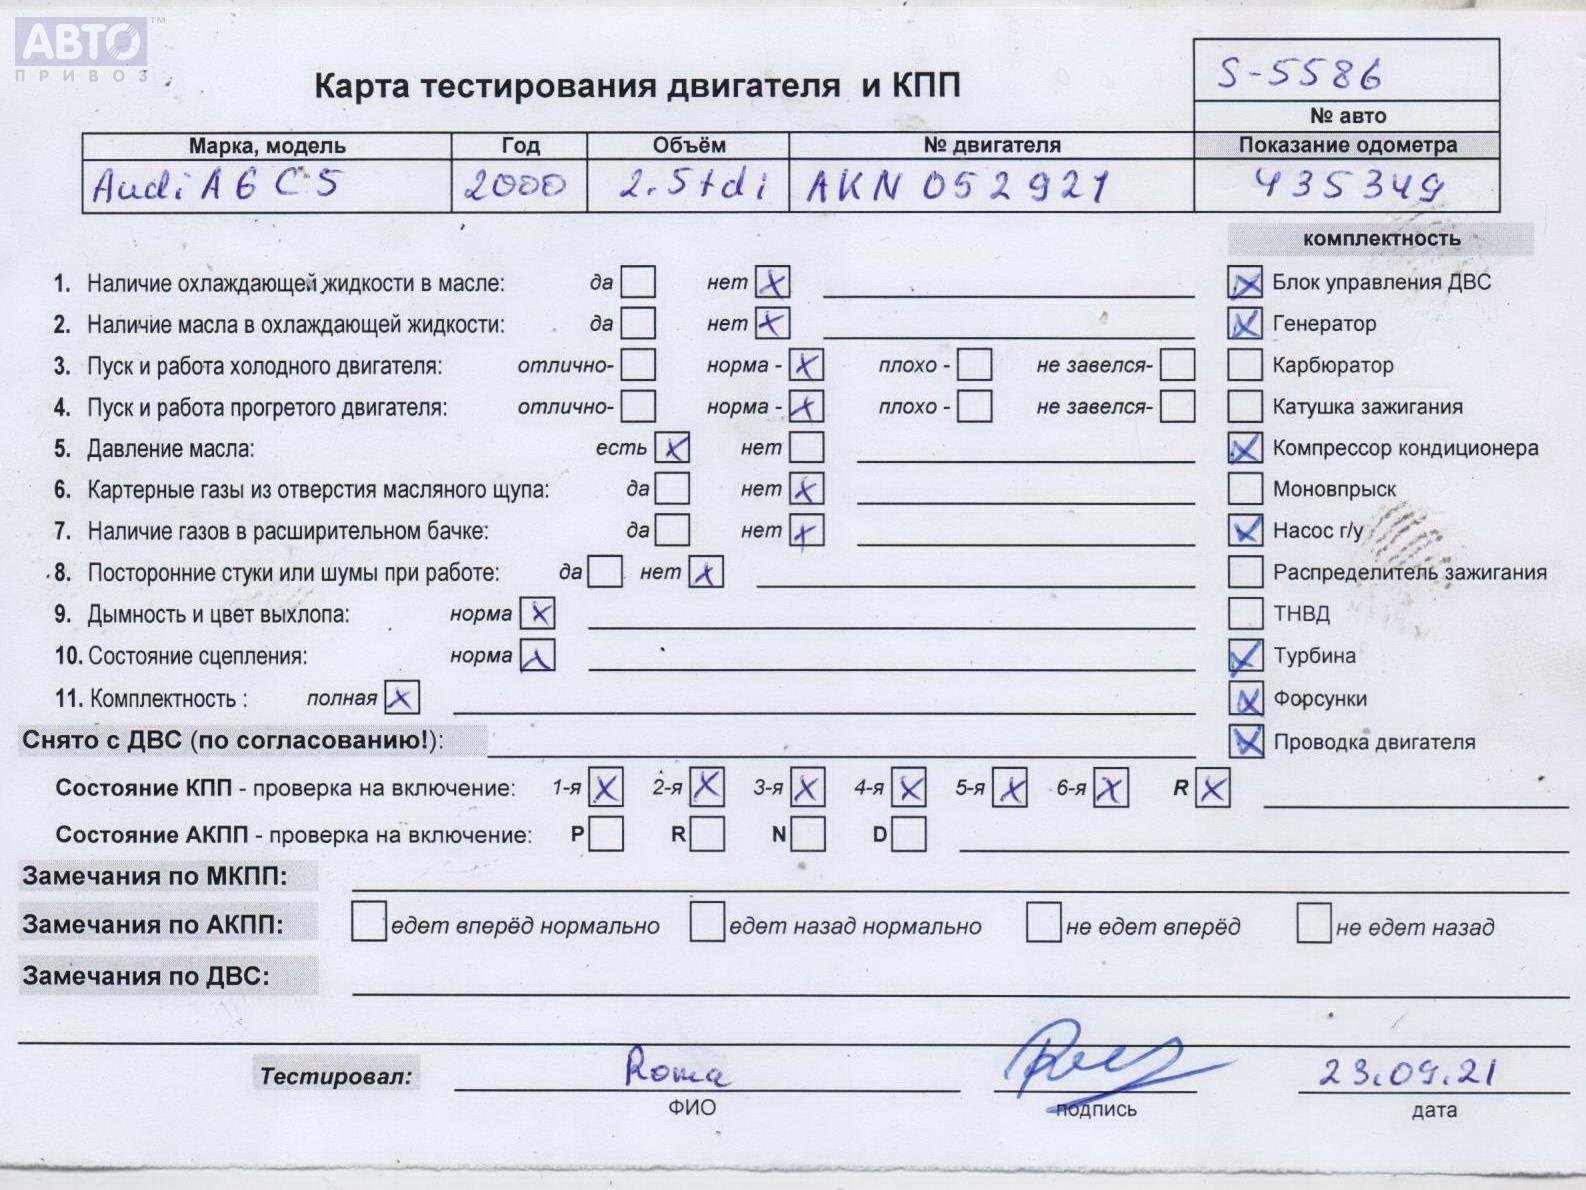 АВТО™
ПРИВОЗ
Карта тестирования двигателя и КПП
S-5586
№ авто
Марка, модель Год Объём № двигателя Показание одометра
Audi A6 C5 2000 2.5tdi AKN 052921 435349
комплектность
1. Наличие охлаждающей жидкости в масле: да нет X Блок управления ДВС
2. Наличие масла в охлаждающей жидкости: да нет X Генератор
3. Пуск и работа холодного двигателя: отлично- норма - X плохо - не завелся- Карбюратор
4. Пуск и работа прогретого двигателя: отлично- норма - X плохо - не завелся- Катушка зажигания
5. Давление масла: есть X нет X Компрессор кондиционера
6. Картерные газы из отверстия масляного щупа: да нет X Моновпрыск
7. Наличие газов в расширительном бачке: да нет X Насос г/у
8. Посторонние стуки или шумы при работе: да нет X Распределитель зажигания
9. Дымность и цвет выхлопа: норма X ТНВД
10. Состояние сцепления: норма X Турбина
11. Комплектность : полная X Форсунки
Снято с ДВС (по согласованию!): X Проводка двигателя
Состояние КПП - проверка на включение: 1-я X 2-я X 3-я X 4-я X 5-я X 6-я X R X
Состояние АКПП - проверка на включение: P R N D
Замечания по МКПП:
Замечания по АКПП: едет вперёд нормально едет назад нормально не едет вперёд не едет назад
Замечания по ДВС:
Тестировал: Roma 23.09.21
ФИО подпись дата